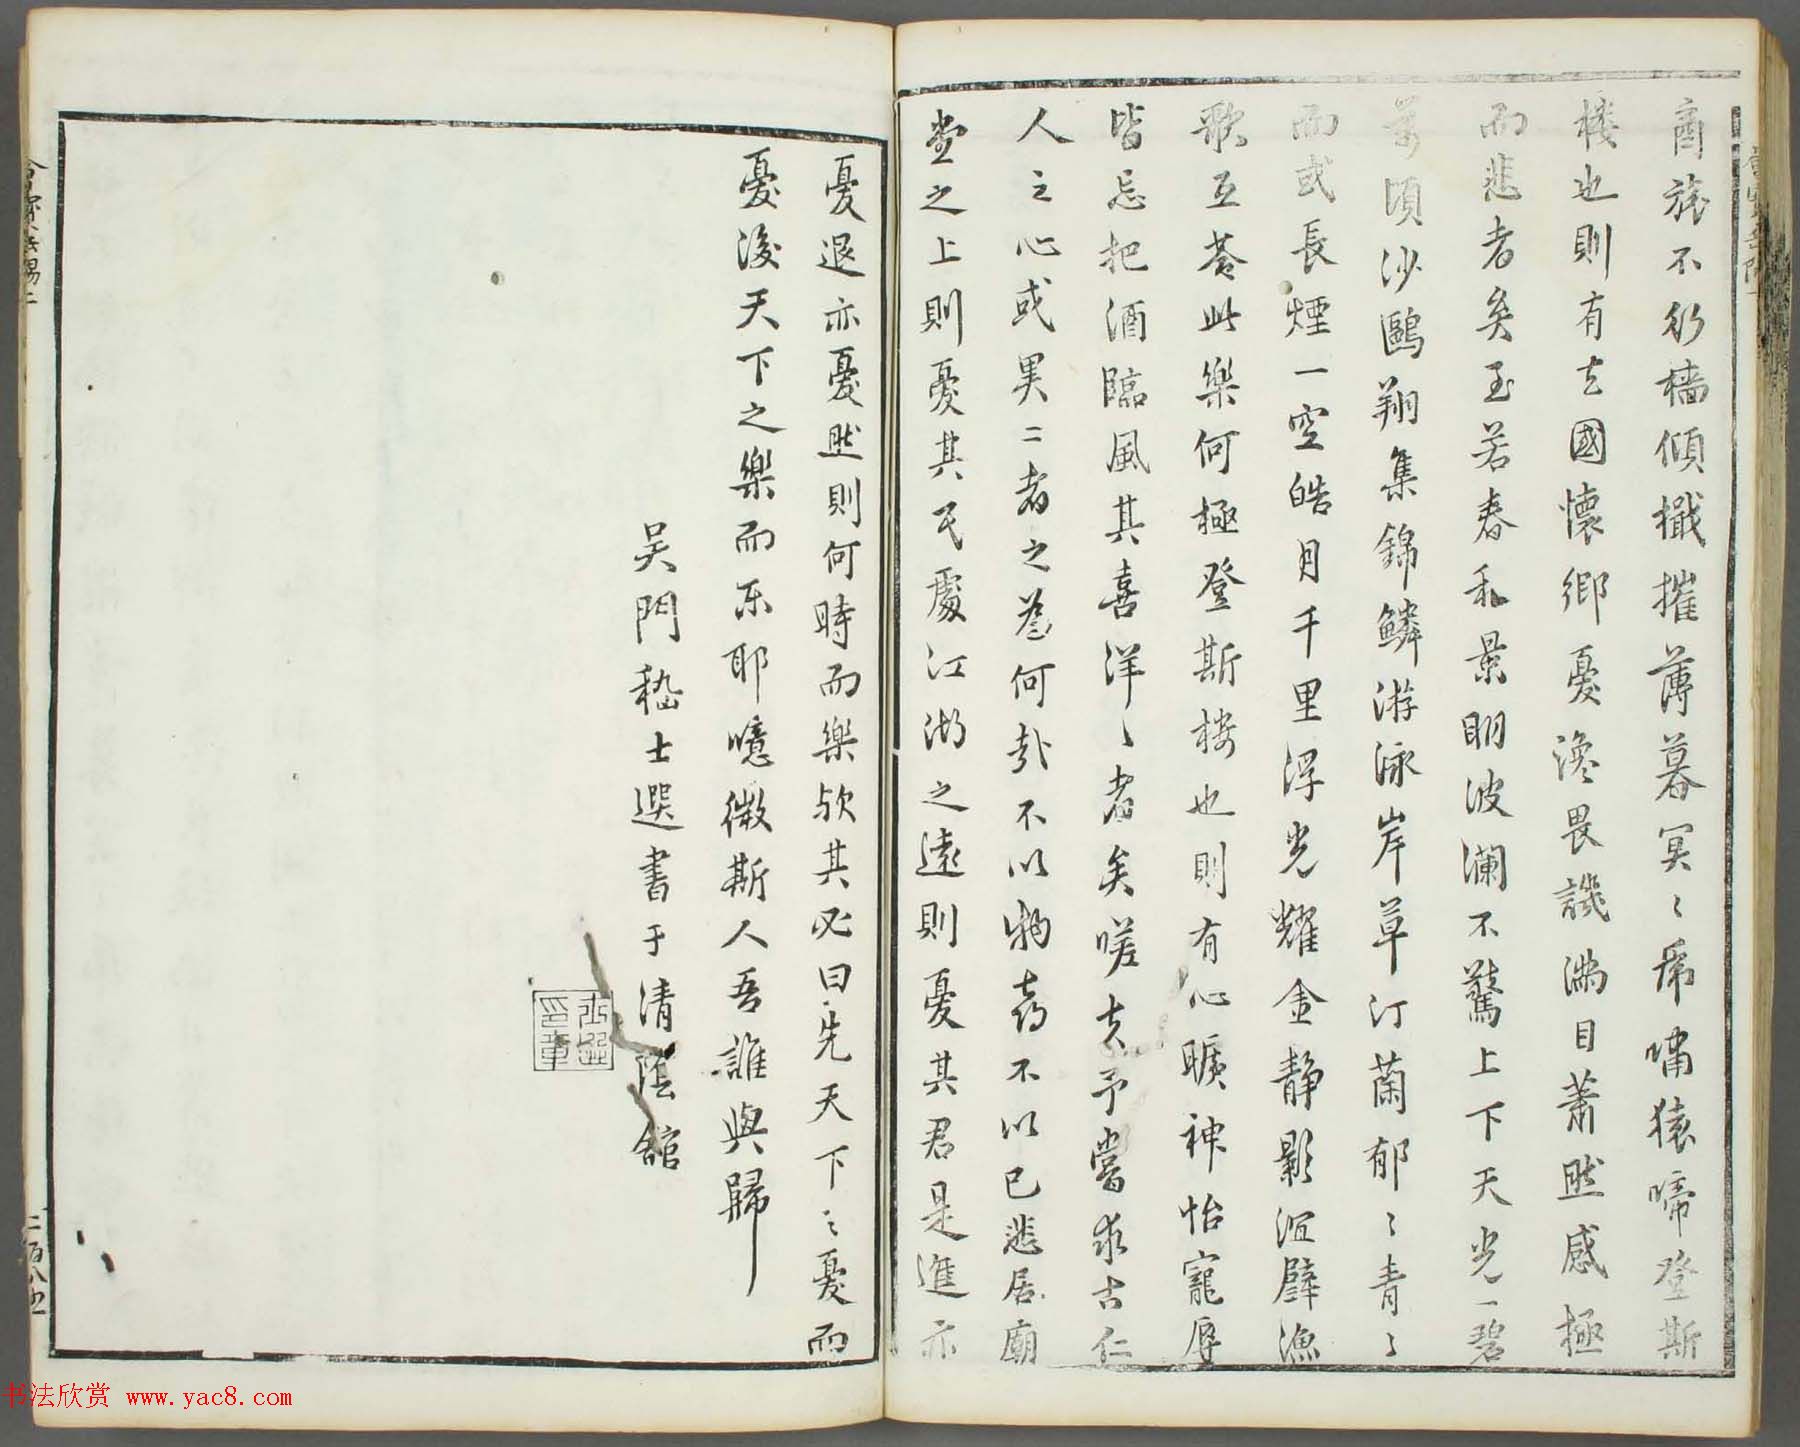 商旅不行檣傾檝摧薄暮冥〻虎嘯猿啼登斯
楼也則有去國懷鄉憂讒畏譏滿目蕭然感極
而悲者矣至若春和景明波瀾不驚上下天光一碧
萬頃沙鷗翔集錦鱗游泳岸草汀蘭郁〻青〻
而或長煙一空皓月千里浮光耀金静影沉璧漁
歌互荅此樂何極登斯楼也則有心曠神怡寵辱
皆忘把酒臨風其喜洋〻者矣嗟夫予嘗求古仁
人之心或異二者之為何哉不以物喜不以己悲居廟
堂之上則憂其民處江湖之遠則憂其君是進亦
憂退亦憂然則何時而樂欤其必曰先天下之憂而
憂後天下之樂而樂耶噫微斯人吾誰與歸
吴門嵇士選書于清蔭舘
二百八十
书法欣赏 www.yac8.com